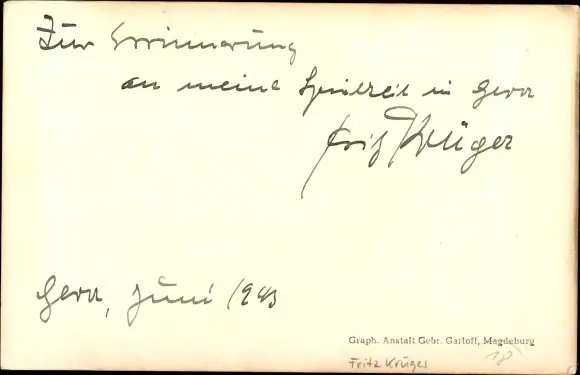 Zur Erinnerung
an meine Spielzeit in Gera
Fritz Krüger
Gera, Juni 1943
Graph. Anstalt Gebr. Garloff, Magdeburg
Fritz Krüger